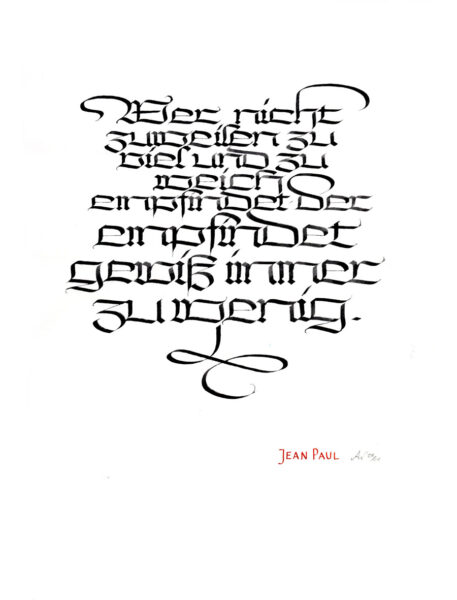 Wer nicht
zuweilen zu
viel und zu
weich
empfindet der
empfindet
gewiß immer
zuwenig.
JEAN PAUL